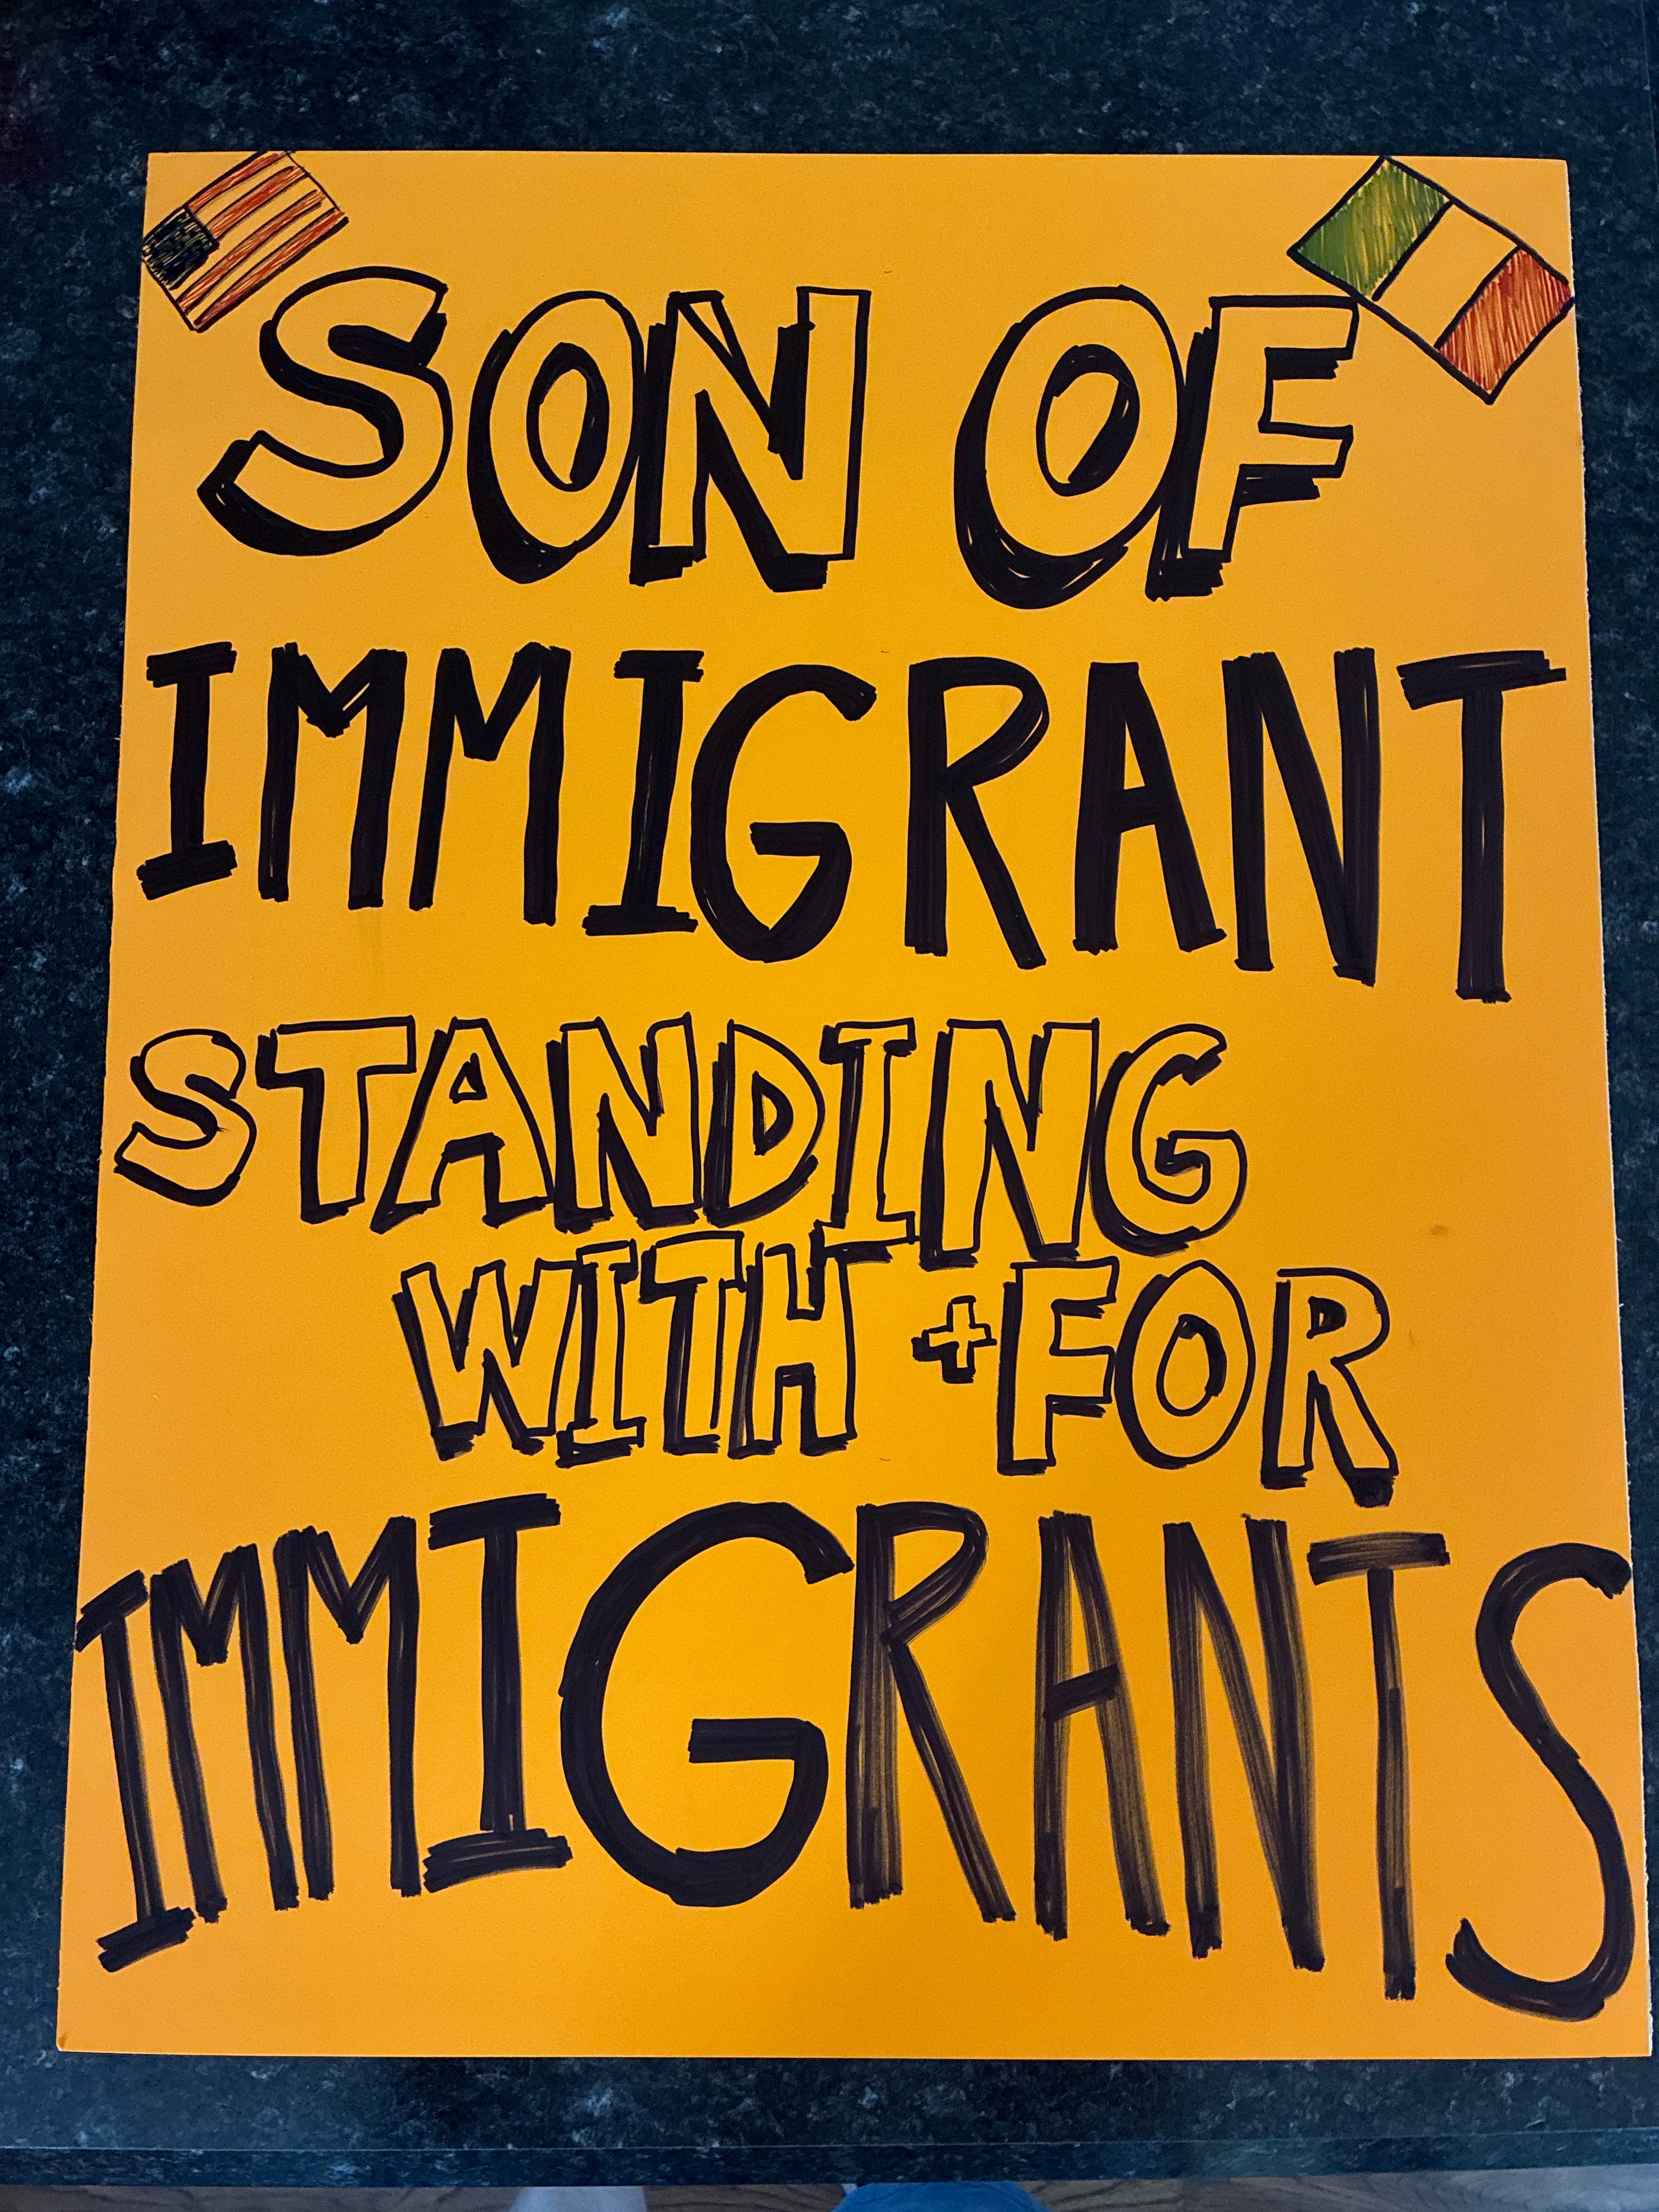 SON OF
IMMIGRANT
STANDING
WITH + FOR
IMMIGRANTS